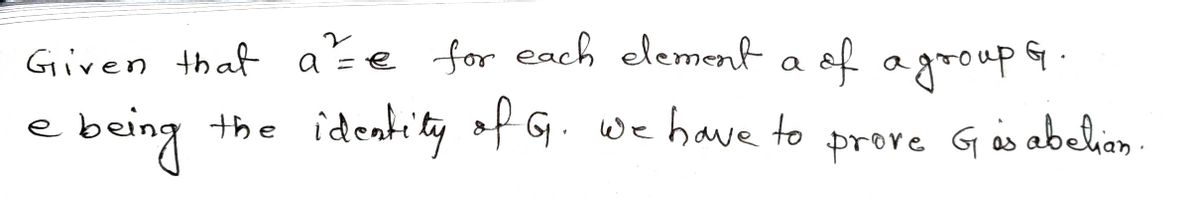 Given that a² = e for each element a of a group G.
e being the identity of G. We have to prove G is abelian.